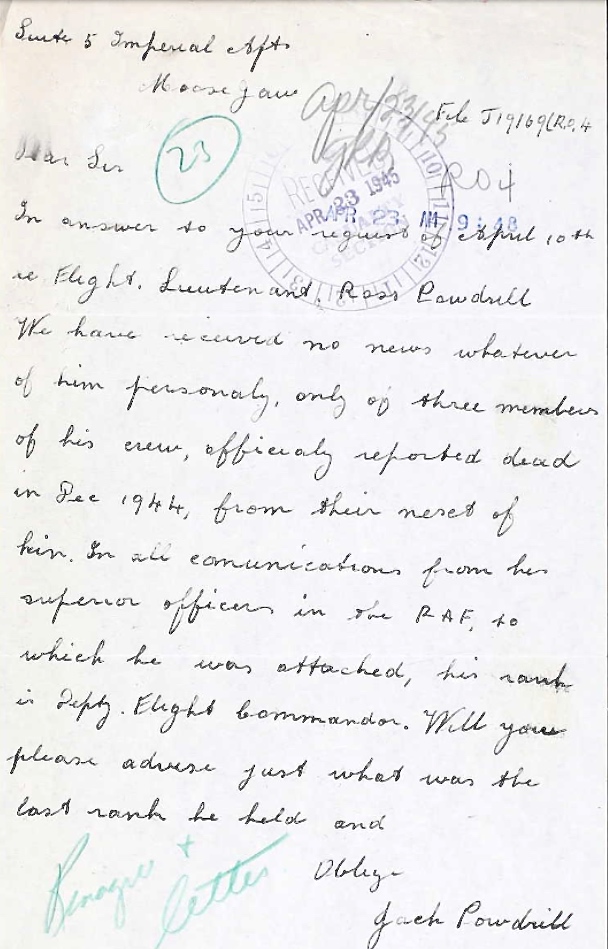 Suite 5 Imperial Apts
Moose Jaw
Apr/23/45
File J19169(R.O.4
23
Dear Sir
RO4
RECEIVED
APR 23 1945
APR 23 AM 9:48
In answer to your request of April 10th
re Flight. Lieutenant. Ross Powdrill
We have received no news whatever
of him personaly, only of three members
of his crew, officialy reported dead
in Dec 1944, from their next of
kin. In all comunications from his
superior officers in the RAF, to
which he was attached, his rank
is Depty. Flight Commandor. Will you
please advise just what was the
last rank he held and
Oblige
Jack Powdrill
+
letter